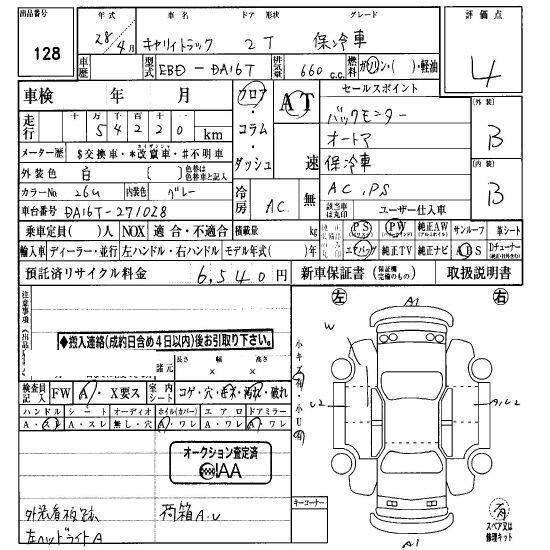 出品番号
128
年式 車名 ドア 形状 グレード
28/4月 キャリイトラック 2T 保冷車
評価点
4
車歴 型式 EBD-DA16T 排気量 660 c.c. 燃料 ガソリン・( )・軽油
車検 年 月
走行 十万 万 千 百 十
5 4 2 2 0 km
メーター歴 $交換車・*改竄車・#不明車
外装色 白 [ ] 色替は色替車と記入
カラーNo. 26U 内装色 グレー
車台番号 DA16T-271028
フロア・コラム・ダッシュ
AT 速
冷房 AC 無
セールスポイント
バックモニター
オートマ
保冷車
AC, PS
外装
B
内装
B
該当車は丸印 ユーザー仕入車
乗車定員( )人 NOX 適合・不適合 積載量 kg
純正装備 PS PW 純正AW サンルーフ 革シート
輸入車 ディーラー・並行 左ハンドル・右ハンドル モデル年式( )年
エアバッグ 純正TV 純正ナビ ABS Dチューナー
預託済リサイクル料金 6,540円 新車保証書 取扱説明書
注意事項
◆搬入連絡(成約日含め4日以内)後お引取り下さい。
諸元 長さ 幅 高さ
× ×
検査員記入 FW A・X要ス 室内シート コゲ・穴・キズ・汚れ・破れ
ハンドル シート オーディオ ホイル(カバー) エアロ ドアミラー
A・スレ A・スレ 無し・穴 A・ワレ A・ワレ A・ワレ
オークション査定済
AIAA
外装看板跡
左ヘッドライトA
荷箱A.U
キーコーナー
左 右
A1
W
U2
A1U2
A1
有
スペア又は修理キット